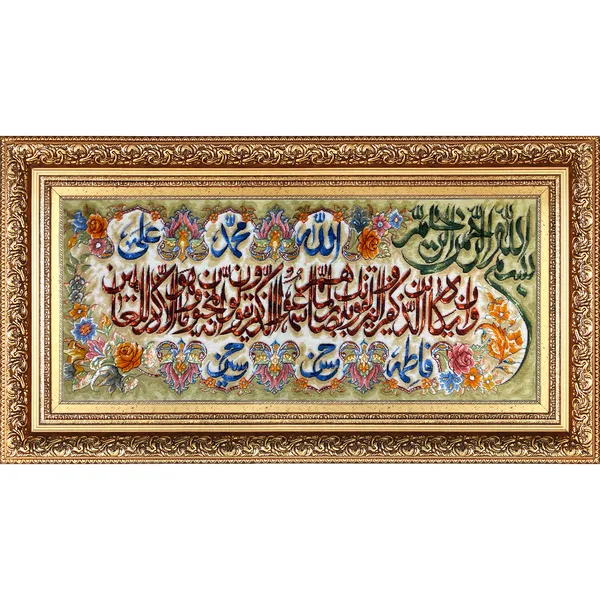 بسم الله الرحمن الرحیم
الله محمد علی
وإن یکاد الذین کفروا لیزلقونک بأبصارهم لما سمعوا الذکر ویقولون إنه لمجنون وما هو إلا ذکر للعالمین
فاطمة حسن حسین